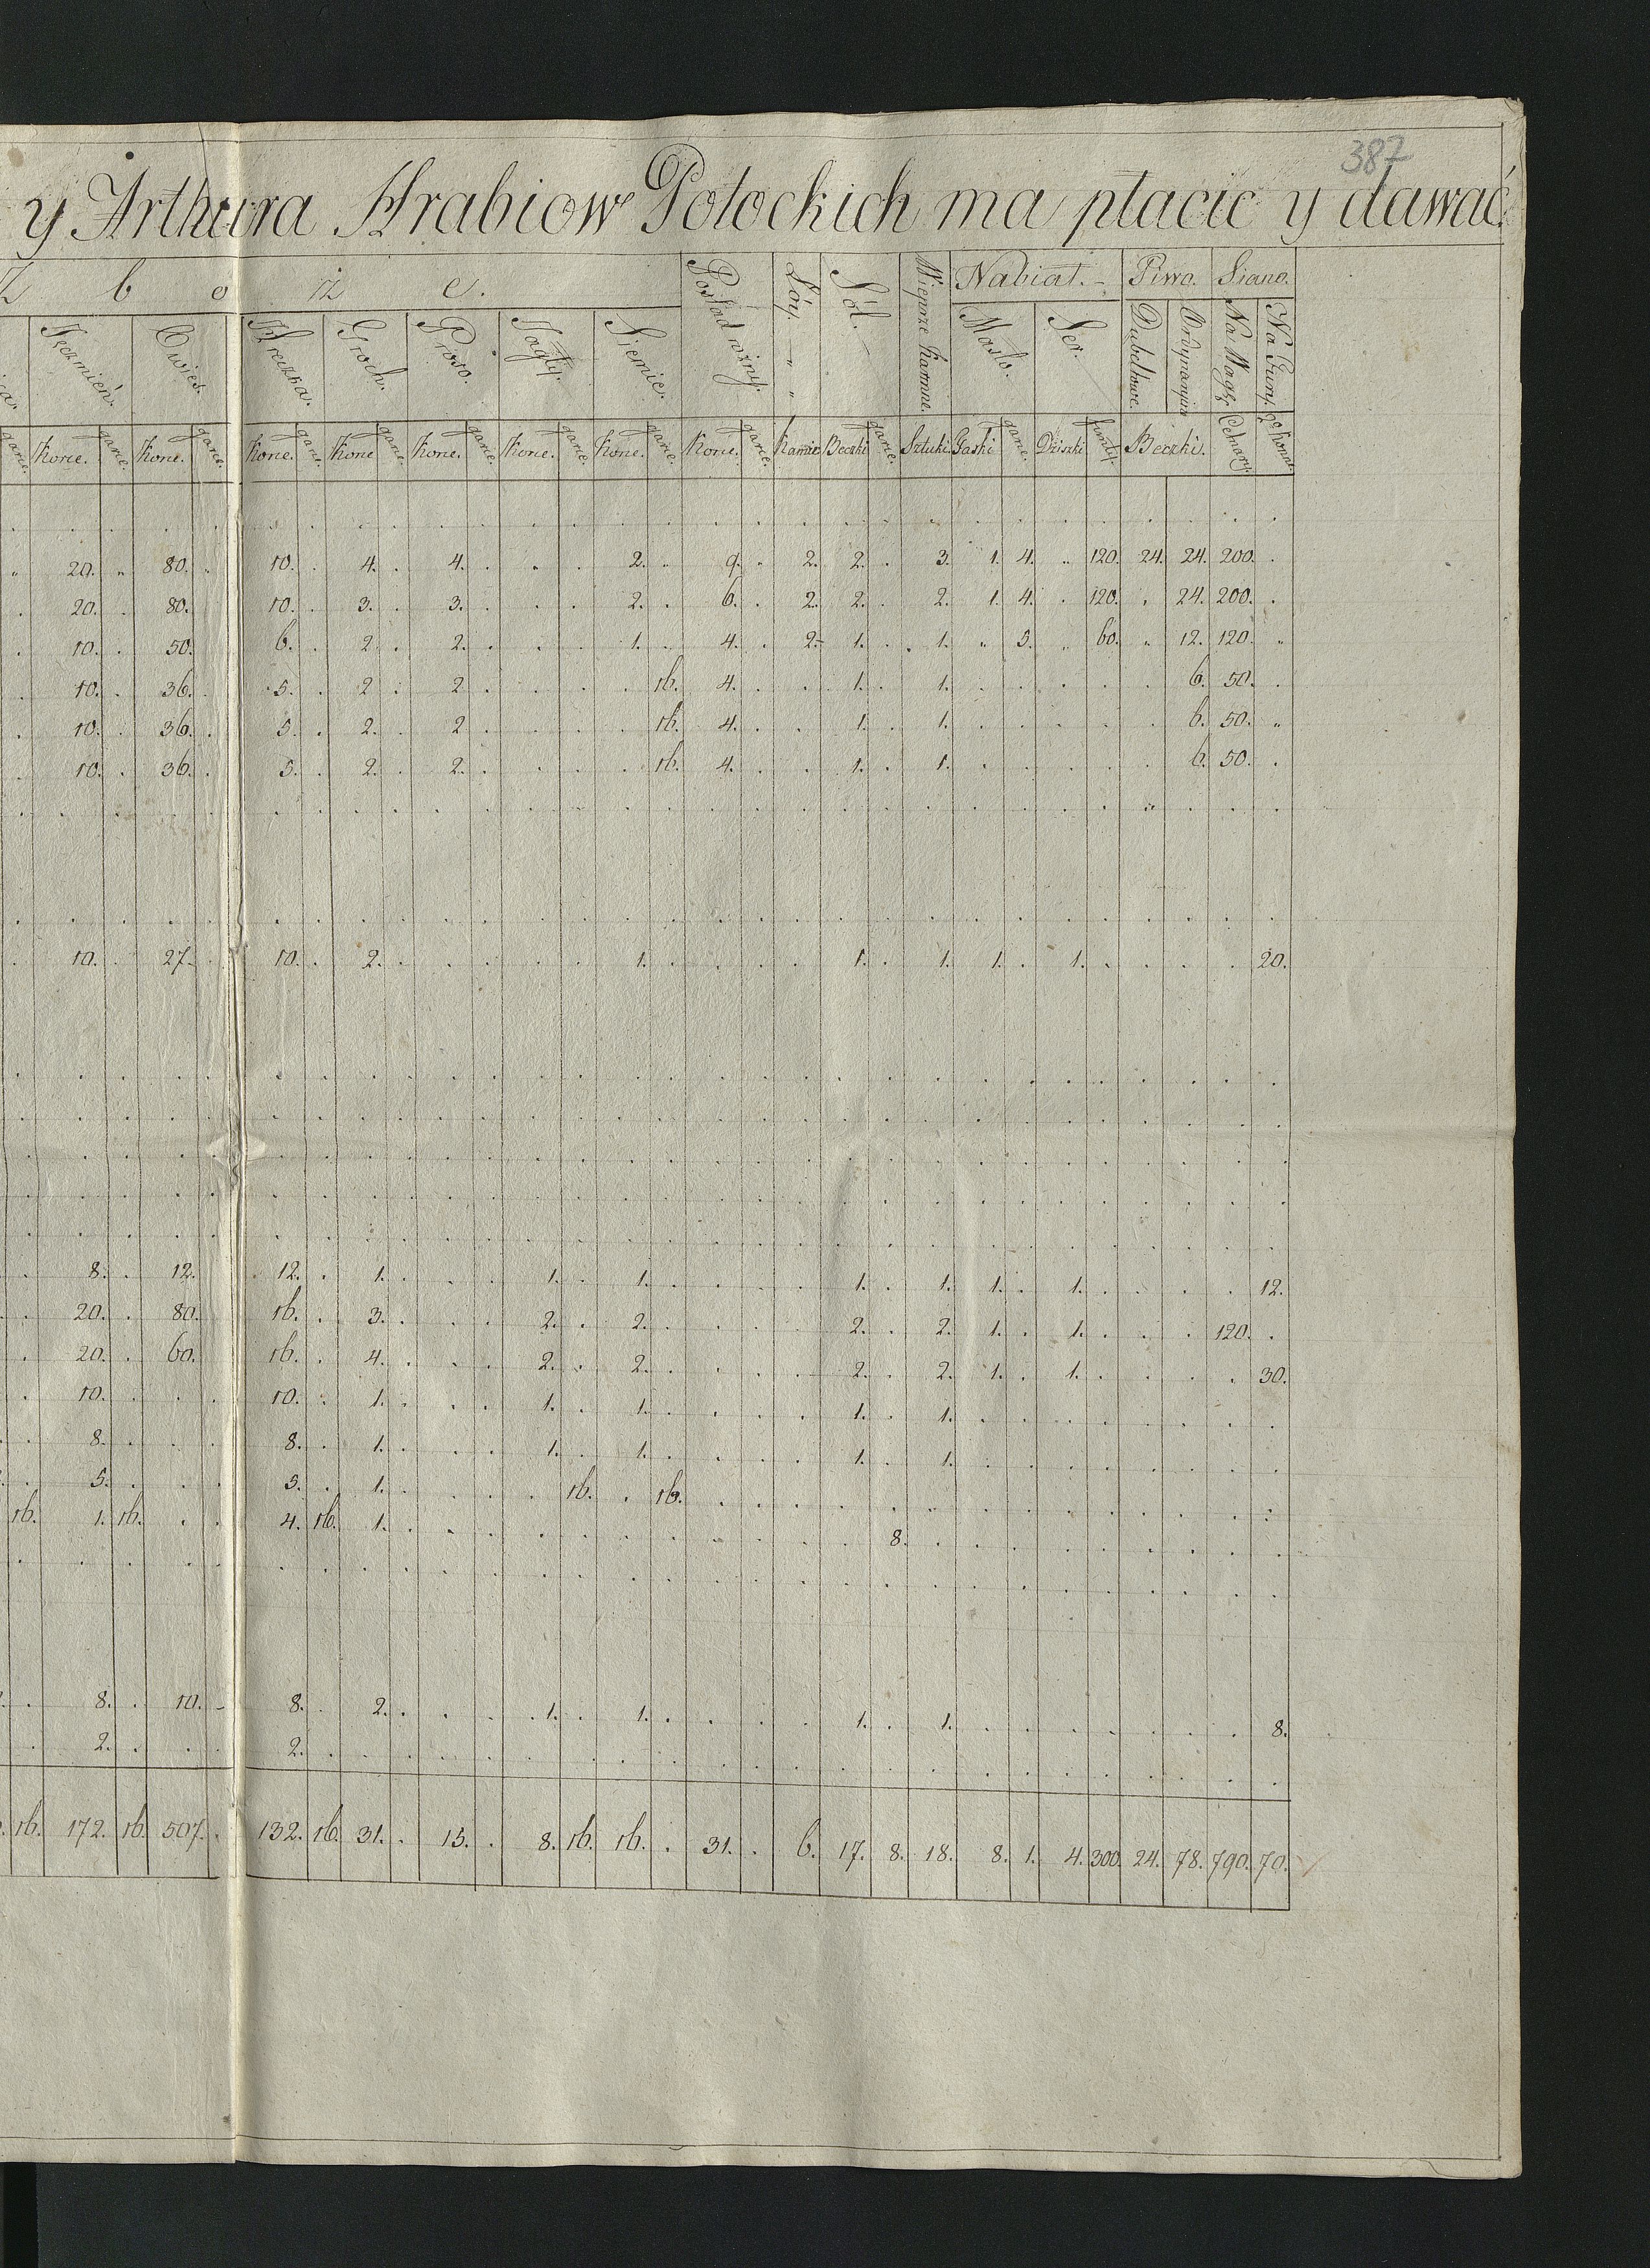 387
y Arthura Hrabiow Potockich ma płacić y dawać
Z b o ż e. Nabiał.- Piwo. Siano.
Jęczmień. Owies. Hreczka. Groch. Proso. Jagły. Siemie. Pośład różny. Łóy. „ „ Sól.- Wieprze Karmne. Masło. Ser. Dubeltowe. Ordynaryine Na Wagę Na Fury.
garce. Korce. garce. Korce. garce. Korce. garce. Korce garce. Korce. garce. Korce. garce. Korce. garce. Korce. garce. Kamie Beczki garce. Sztuki. Faski garce. Dziszki funty. Beczki. Cetnary.
. . . . . . . . . . . . . . . . . . . . . . . . . . . . .
„ 20. „ 80. . 10. . 4. . 4. . . . 2. „ 9. „ 2. 2. . 3. 1. 4. „ 120. 24. 24. 200. .
. 20. . 80. 10. . 3. . 3. . . . 2. . 6. . 2. 2. . 2. 1. 4. . 120. „ 24. 200. .
. 10. . 50. 6. . 2. . 2. . . . 1. . 4. . 2- 1. . 1. „ 5. „ 60. „ 12. 120. „
. 10. . 36. . 5. . 2 . 2 . . . . 16. 4. . . 1. . 1. . . . . . 6. 50. .
. 10. . 36. . 5. . 2. . 2 . . . . 16. 4. . . 1. . 1. . . . . . 6. 50. „
. 10. . 36. . 5. . 2. . 2. . . . . 16. 4. . . 1. . 1. . . . . . 6. 50. .
. 10. . 27. . 10. . 2. . . . . . 1. . . . . 1. . 1. 1. . 1. . . . . 20.
. 8. . 12. . 12. . 1. . . . 1. . 1. . . . . 1. . 1. 1. . 1. . . . . 12.
. 20. . 80. 16. . 3. . . . 2. . 2. . . . . 2. . 2. 1. . 1. . . . 120. .
. 20. . 60. 16. . 4. . . . 2. . 2. . . . . 2. . 2. 1. . 1. . . . . 30.
. 10. . . . 10. . 1. . . . 1. . 1. . . . . 1. . 1. . . . . . . . .
. 8. . . . 8. . 1. . . . 1. . 1. . . . . 1. . 1. . . . . . . . .
. 5. . . . 5. . 1. . . . . 16. . 16. . . . . . . . . . . . . . .
16. 1. 16. . . 4. 16. 1. . . . . . . . . . . . 8. . . . . . . . . .
. 8. . 10. - 8. . 2. . . . 1. . 1. . . . . 1. . 1. . . . . . . . 8.
. 2. . . . 2. . . . . . . . . . . . . . . . . . . . . . . .
16. 172. 16. 507. . 132. 16. 31. . 15. . 8. 16. 16. . 31. . 6. 17. 8. 18. 8. 1. 4. 300. 24. 78. 790. 70.